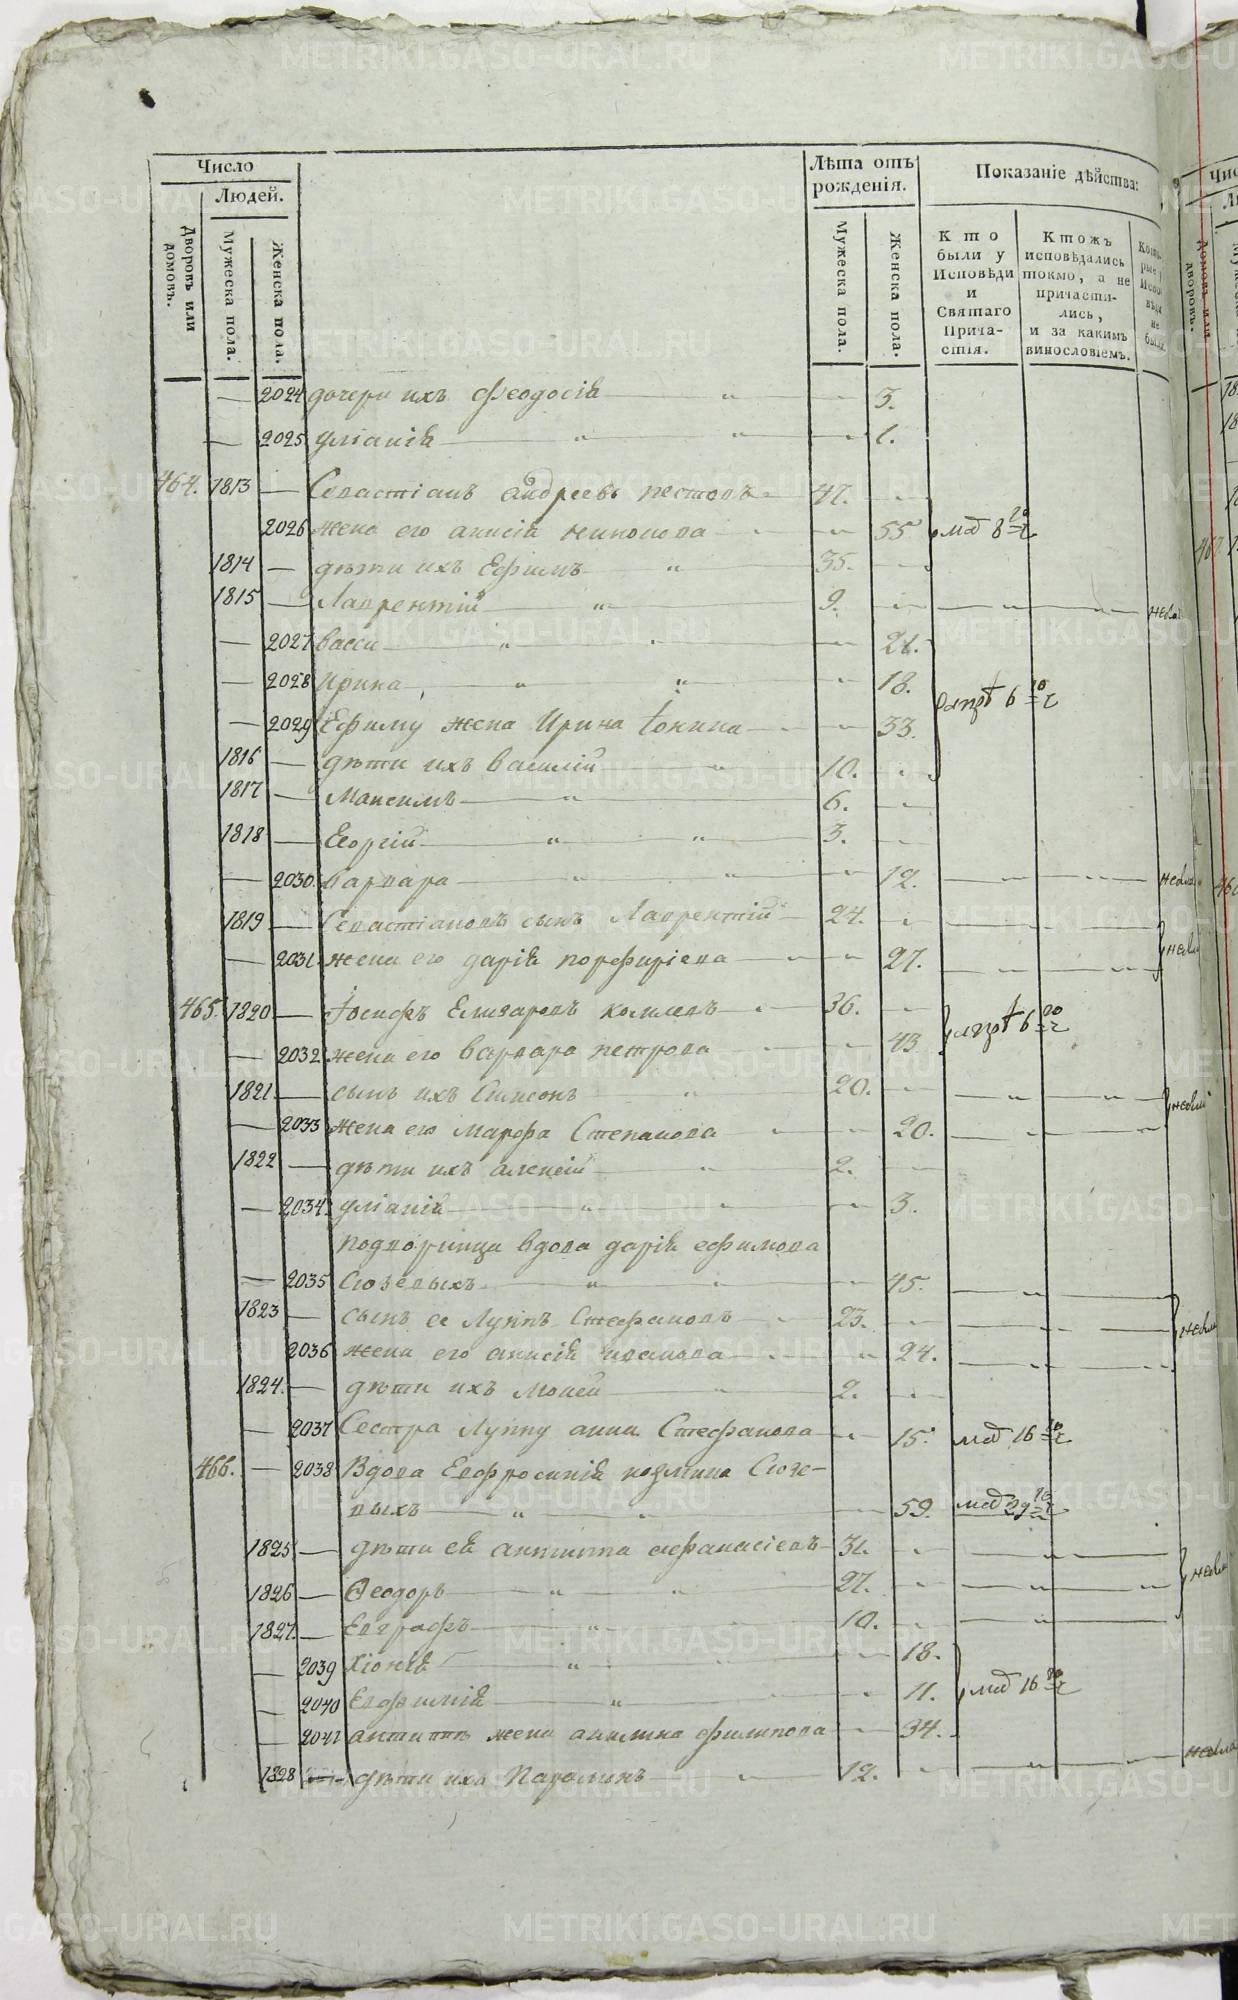 Число
Людей.
Дворовъ или домовъ.
Мужеска пола.
Женска пола.
Лѣта отъ рожденія.
Мужеска пола.
Женска пола.
Показаніе дѣйства:
Кто были у Исповѣди и Святаго Прича-стія.
Ктожъ исповѣдались токмо, а не причасти-лись, и за какимъ винословіемъ.
— 2024 дочери ихъ Феодосія — " — 3.
— 2025 Уліанія — " — " — 1.
464. 1813 — Севастіанъ Андреевъ Пестовъ — 47.
2026 жена его Анисія — 55
1814 — дѣти ихъ Ефимъ — " 35.
1815 — Лаврентій — " 9.
— 2027 Васси — " — 21.
— 2028 Ирина — " — " — 18.
— 2029 Ефиму жена Ирина — 33.
1816 — дѣти ихъ Василій — 10.
1817 — Максимъ — " 6.
1818 — Георгій — " — " 3.
— 2030. Варвара — " — " — 12.
1819 — Севастіановъ сынъ Лаврентій — 24.
— 2031. жена его Дарія Порфиріева — 27.
465. 1820 — Іосифъ Елизаровъ — 36.
— 2032 жена его Варвара Петрова — 43
1821. — сынъ ихъ Симеонъ — " 20.
— 2033 жена его Марфа Степанова — 20.
1822 — дѣти ихъ Алексій — " 2.
— 2034. Уліанія — " — 3.
Подворница вдова Дарія Ефимова
— 2035 Сюзевыхъ — " — 45.
1823 — сынъ ея Луппъ Стефановъ — 23.
2036 жена его Анисія Иванова — 24.
1824. — дѣти ихъ Мокей — " 2.
— 2037 Сестра Луппу Анна Стефанова — 15.
466. — 2038 Вдова Евфросинія Козмина Сюзе-
выхъ — " — 59.
1825 — дѣти ея Антипа Афанасіевъ — 31.
1826 — Ѳеодоръ — " — " 27.
1827. — Евграфъ — " 10.
— 2039 Хіонія — " — 18.
— 2040 Евфимія — " — 11.
— 2041 Антипѣ жена Акилина Филипова — 34.
1828 — дѣти ихъ — 12.
METRIKI.GASO-URAL.RU